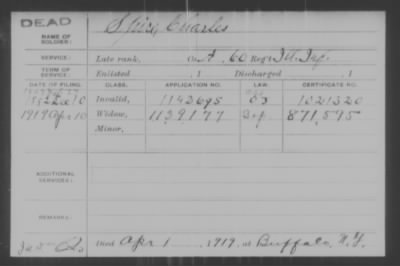 DEAD
NAME OF SOLDIER: Spire, Charles
SERVICE: Late rank, Co. A, 60 Reg't Ill. Inf.
TERM OF SERVICE: Enlisted , 1 Discharged , 1
DATE OF FILING. CLASS. APPLICATION NO. LAW. CERTIFICATE NO.
Invalid, 1142695 1021320
1919 Apr 10 Widow, 1139177 871,595
Minor,
ADDITIONAL SERVICES:
REMARKS:
Died Apr 1 , 1919, at Buffalo, N.Y.